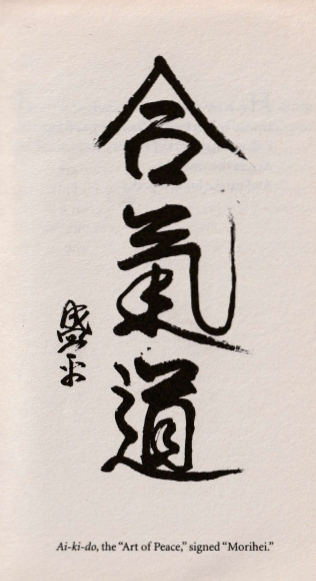 合氣道
盛平
Ai-ki-do, the “Art of Peace,” signed “Morihei.”